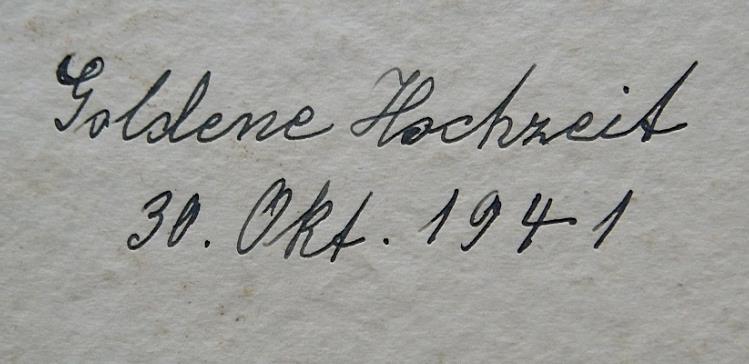 Goldene Hochzeit
30. Okt. 1941